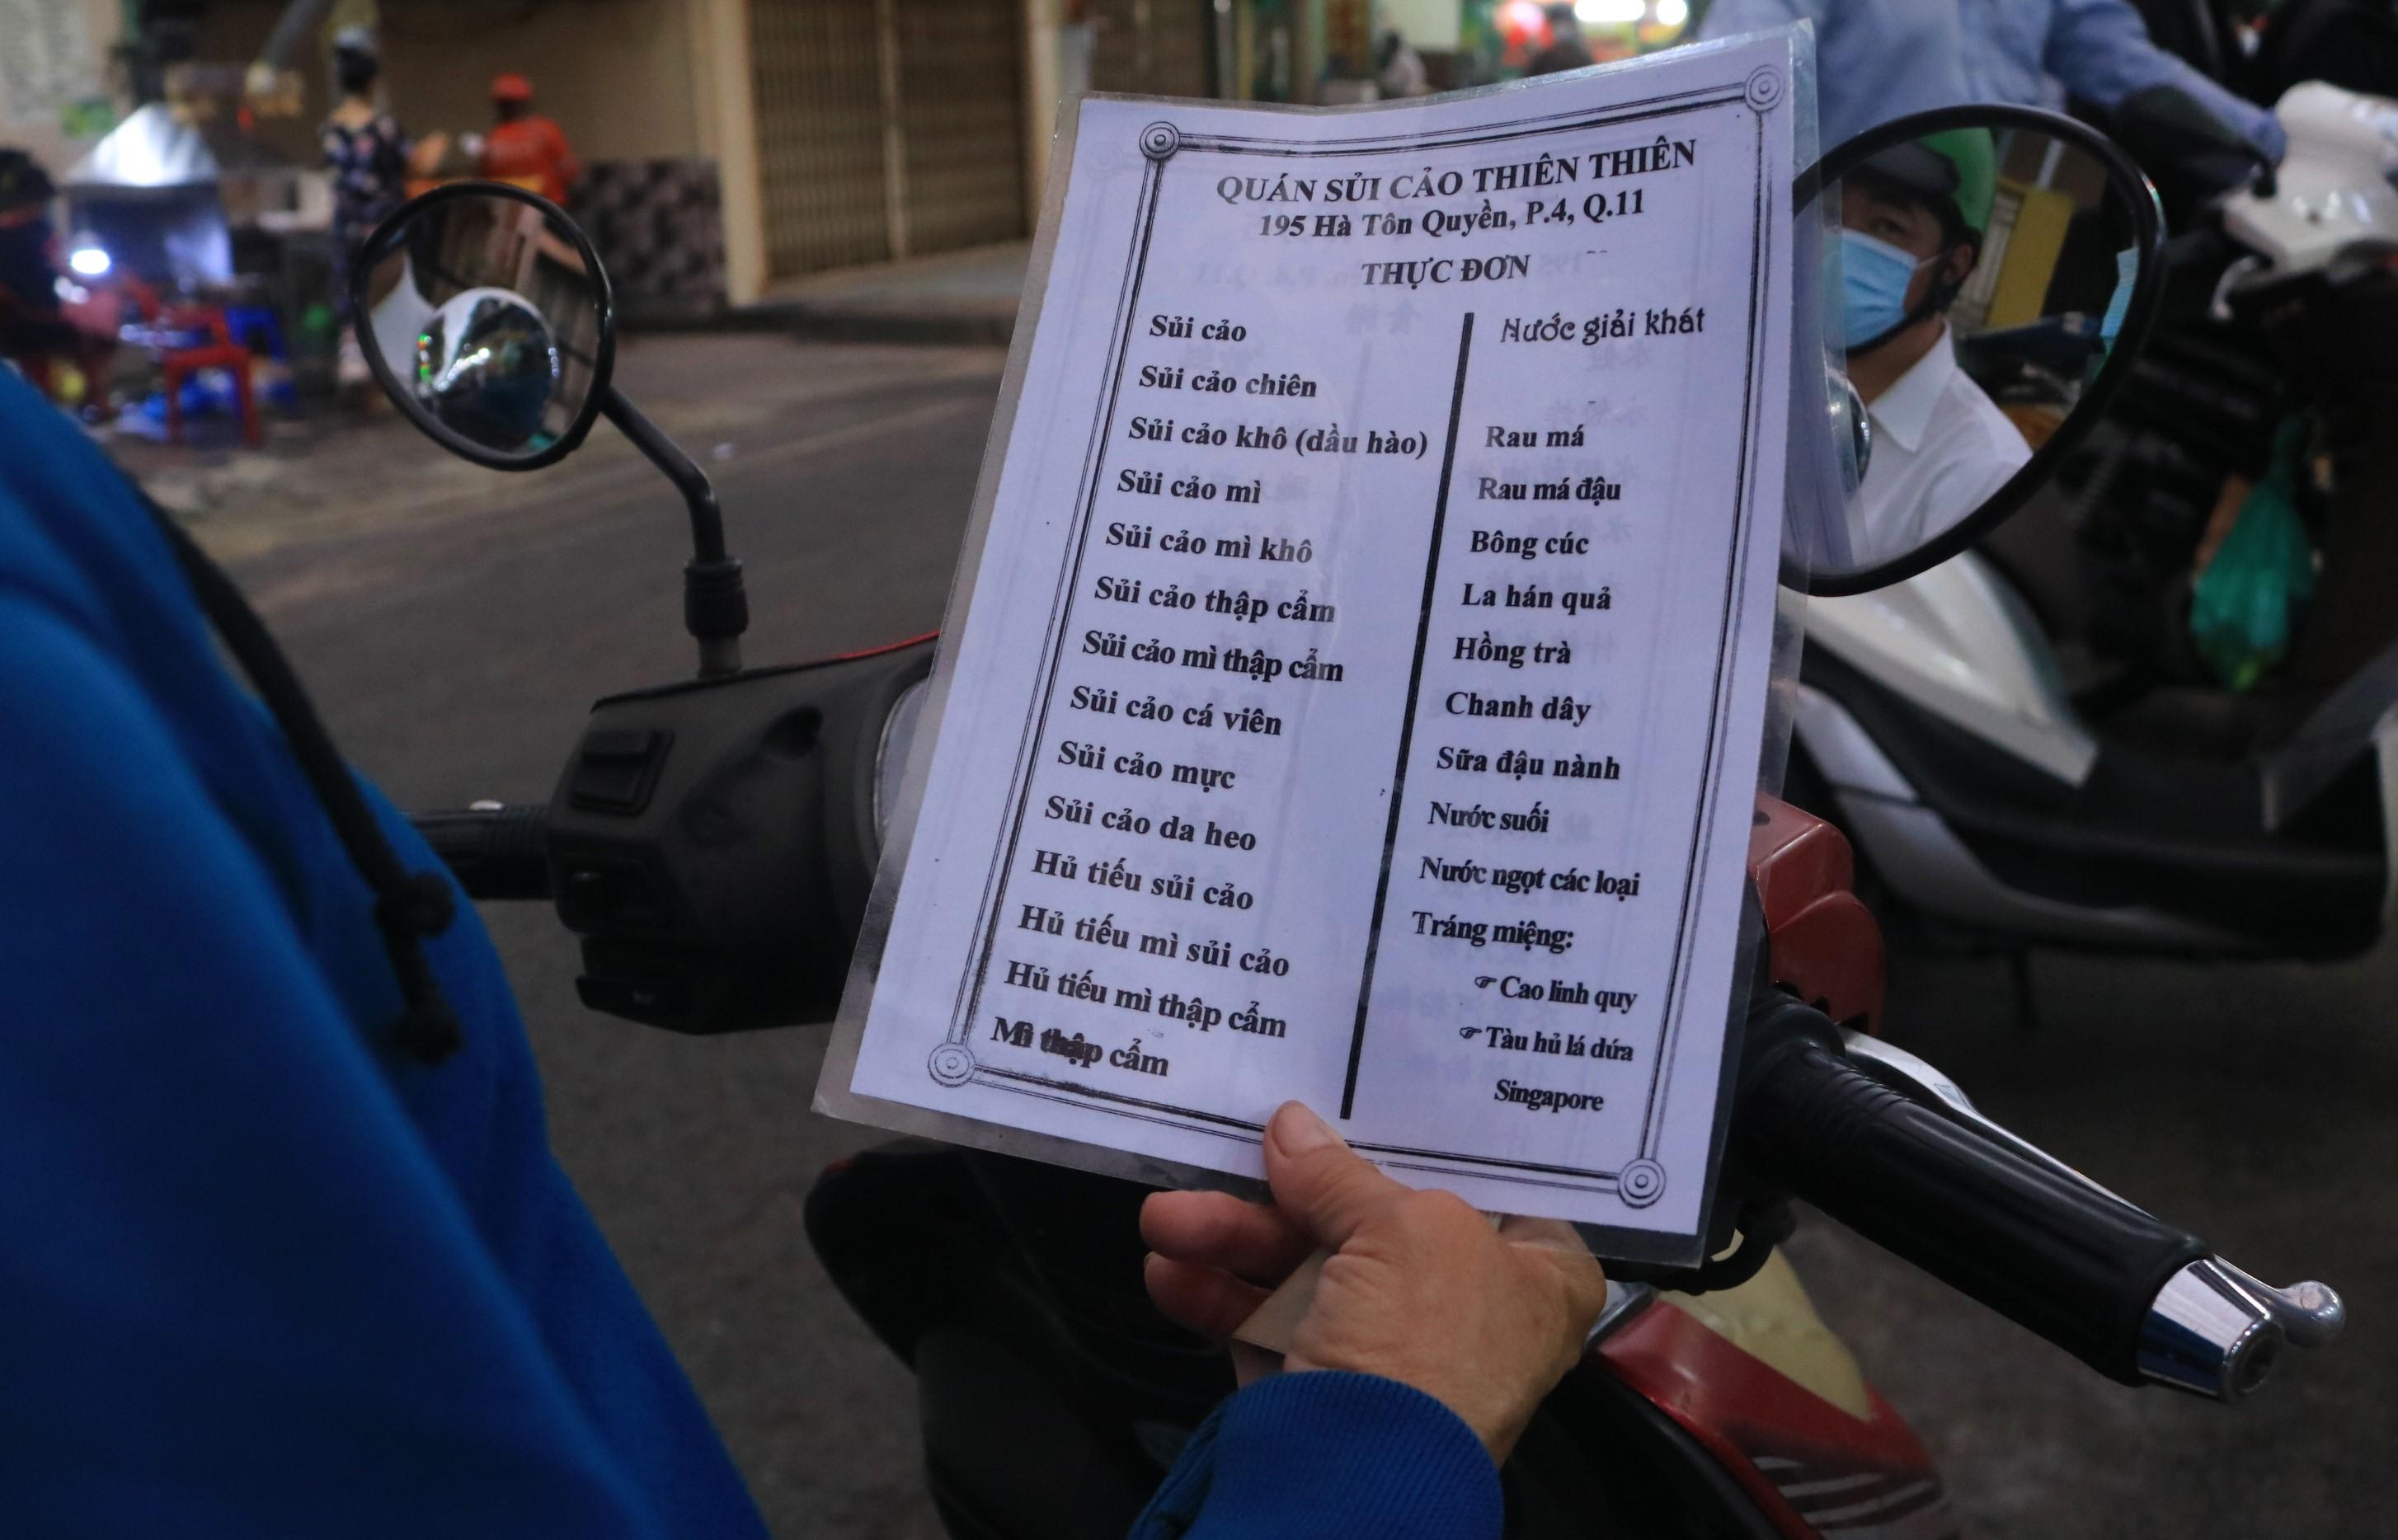 QUÁN SỦI CẢO THIÊN THIÊN
195 Hà Tôn Quyền, P.4, Q.11
THỰC ĐƠN
Sủi cảo
Sủi cảo chiên
Sủi cảo khô (dầu hào)
Sủi cảo mì
Sủi cảo mì khô
Sủi cảo thập cẩm
Sủi cảo mì thập cẩm
Sủi cảo cá viên
Sủi cảo mực
Sủi cảo da heo
Hủ tiếu sủi cảo
Hủ tiếu mì sủi cảo
Hủ tiếu mì thập cẩm
Mì thập cẩm
Nước giải khát
Rau má
Rau má đậu
Bông cúc
La hán quả
Hồng trà
Chanh dây
Sữa đậu nành
Nước suối
Nước ngọt các loại
Tráng miệng:
☞ Cao linh quy
☞ Tàu hủ lá dứa
Singapore